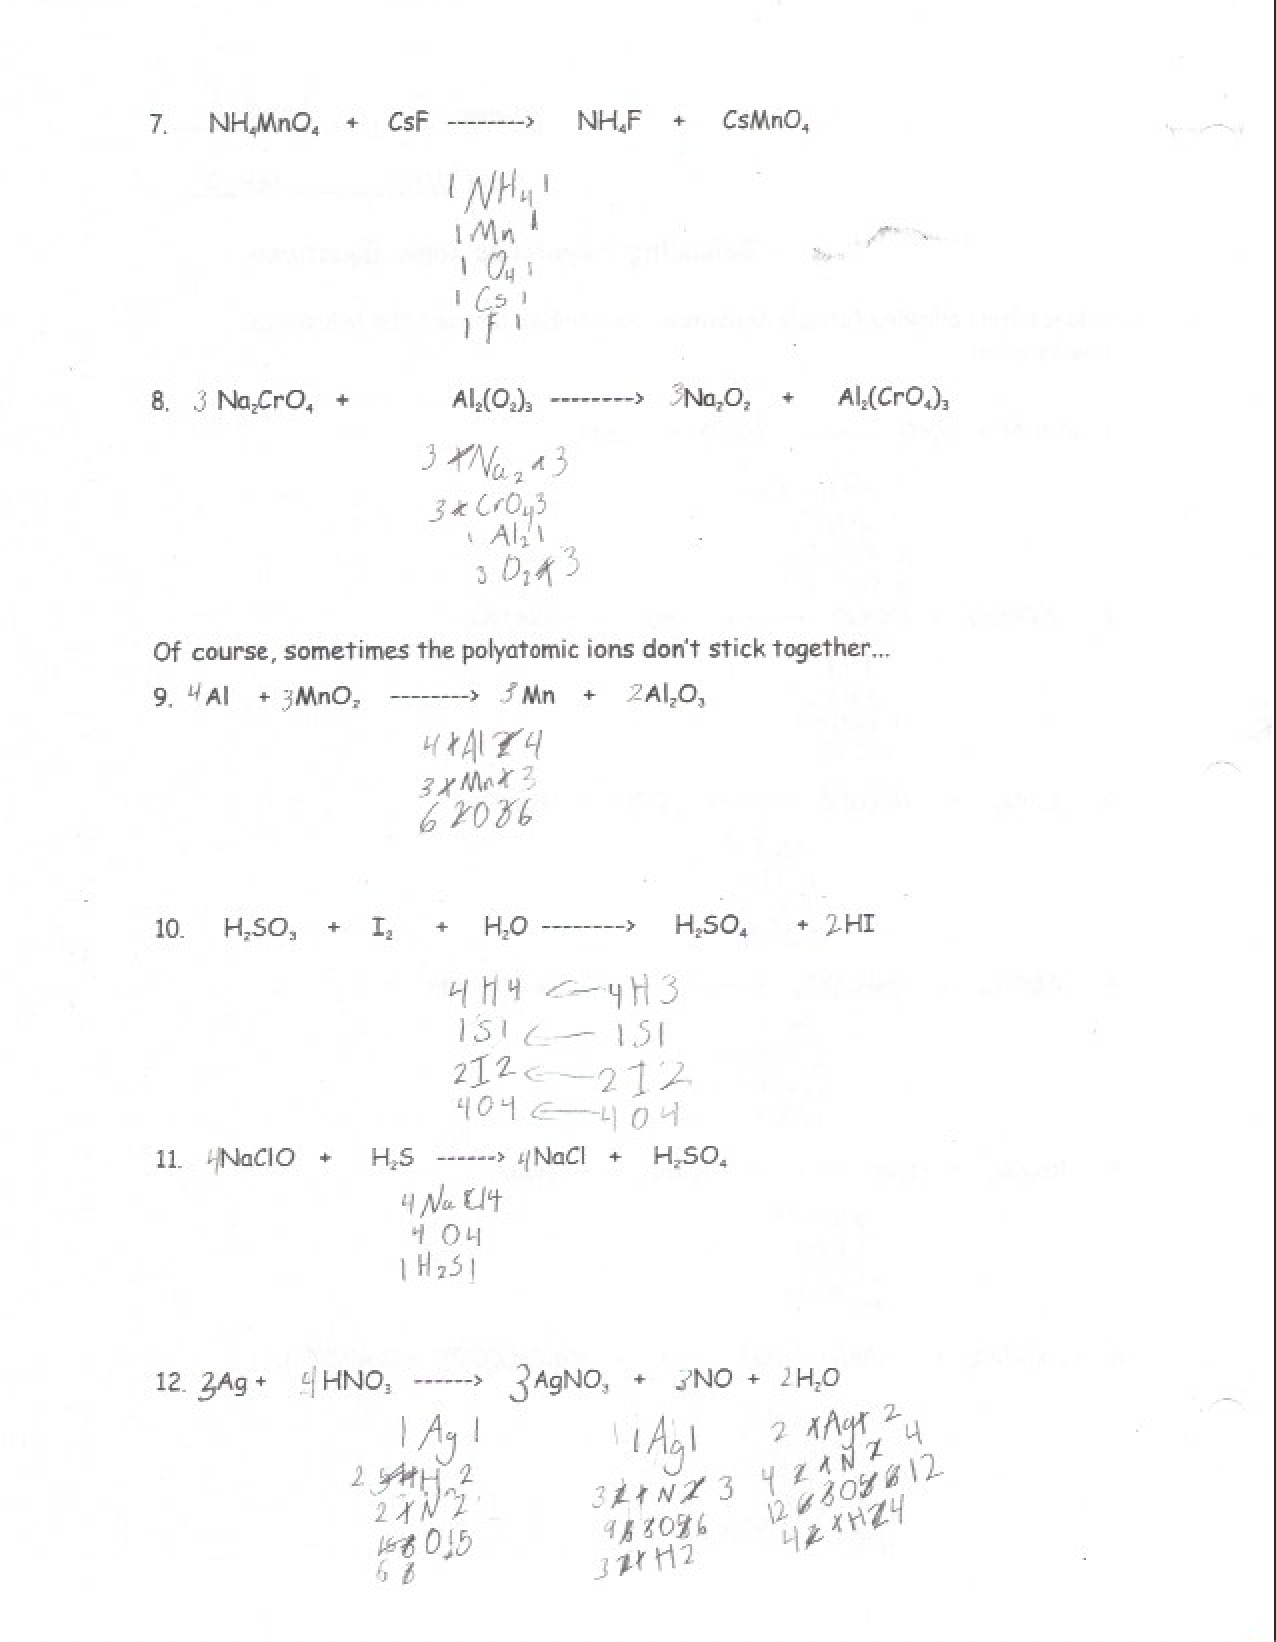 7. NH₄MnO₄ + CsF --------> NH₄F + CsMnO₄
1 NH₄ 1
1 Mn 1
1 O₄ 1
1 Cs 1
1 F 1
8. 3 Na₂CrO₄ + Al₂(O₂)₃ --------> 3Na₂O₂ + Al₂(CrO₄)₃
3 Na₂ 3
3 CrO₄ 3
1 Al₂ 1
3 O₂ 3
Of course, sometimes the polyatomic ions don't stick together...
9. 4Al + 3MnO₂ --------> 3Mn + 2Al₂O₃
4 Al 4
3 Mn 3
6 O 6
10. H₂SO₃ + I₂ + H₂O --------> H₂SO₄ + 2HI
4H4 <— 4H3
1S1 <— 1S1
2I2 <— 2I2
4O4 <— 4O4
11. 4NaClO + H₂S ------> 4NaCl + H₂SO₄
4 NaCl 4
4 O 4
1 H₂S 1
12. 3Ag + 4HNO₃ ------> 3AgNO₃ + 3NO + 2H₂O
1 Ag 1 1 Ag 1 2 Ag 2
2 H 2 3 N 3 4 N 4
2 N 2 9 O 6 12 O 12
O 15 3 H 2 4 H 4
6